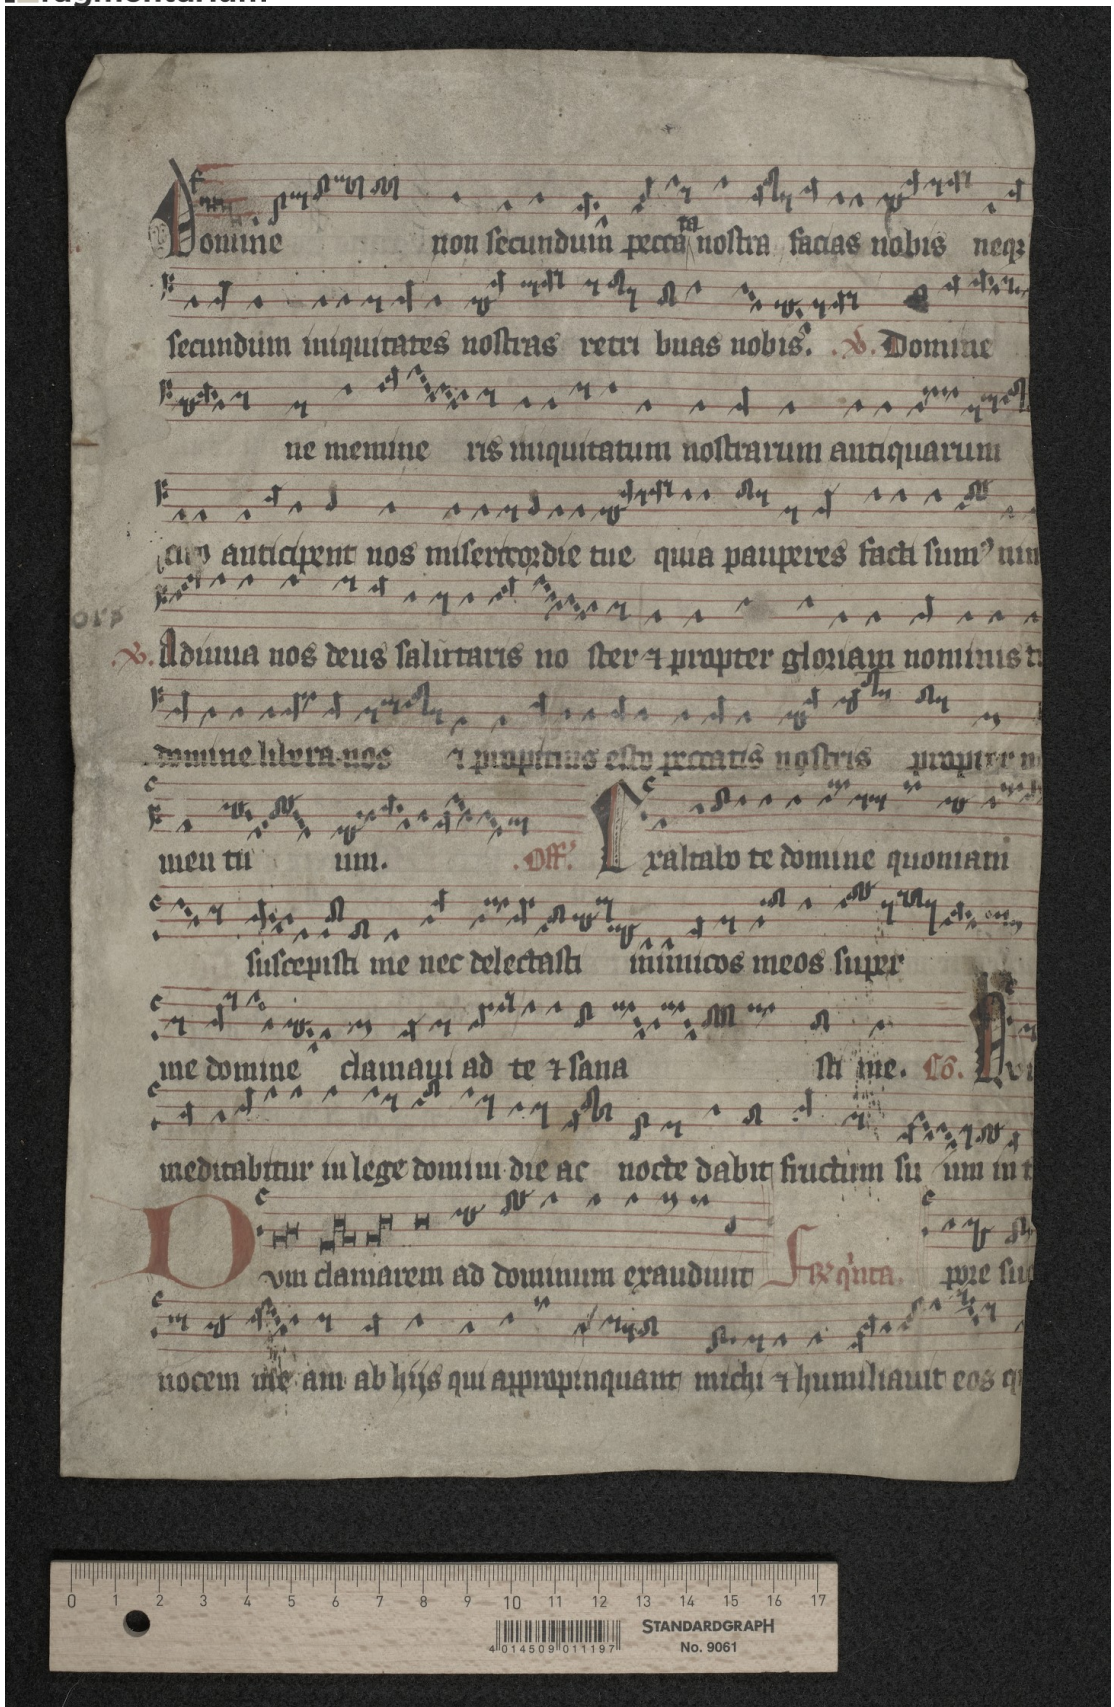 Domine non secundum peccata nostra facias nobis neqꝫ
secundum iniquitates nostras retri buas nobis. .V. Domine
ne memine ris iniquitatum nostrarum antiquarum
cito anticipent nos misericordie tue quia pauperes facti sumꝰ nim
.V. Adiuua nos deus salutaris no ster ⁊ propter gloriam nominis t
domine libera nos ⁊ propitius esto peccatis nostris propter n
men tu um. .Off. Exaltabo te domine quoniam
suscepisti me nec delectasti inimicos meos super
me domine clamaui ad te ⁊ sana sti me. Co. Qui
meditabitur in lege domini die ac nocte dabit fructum su um in t
Dvm clamarem ad dominum exaudiuit
uocem me am ab hijs qui appropinquant michi ⁊ humiliauit eos q
0 1 2 3 4 5 6 7 8 9 10 11 12 13 14 15 16 17
STANDARDGRAPH
4 014509 011197
No. 9061